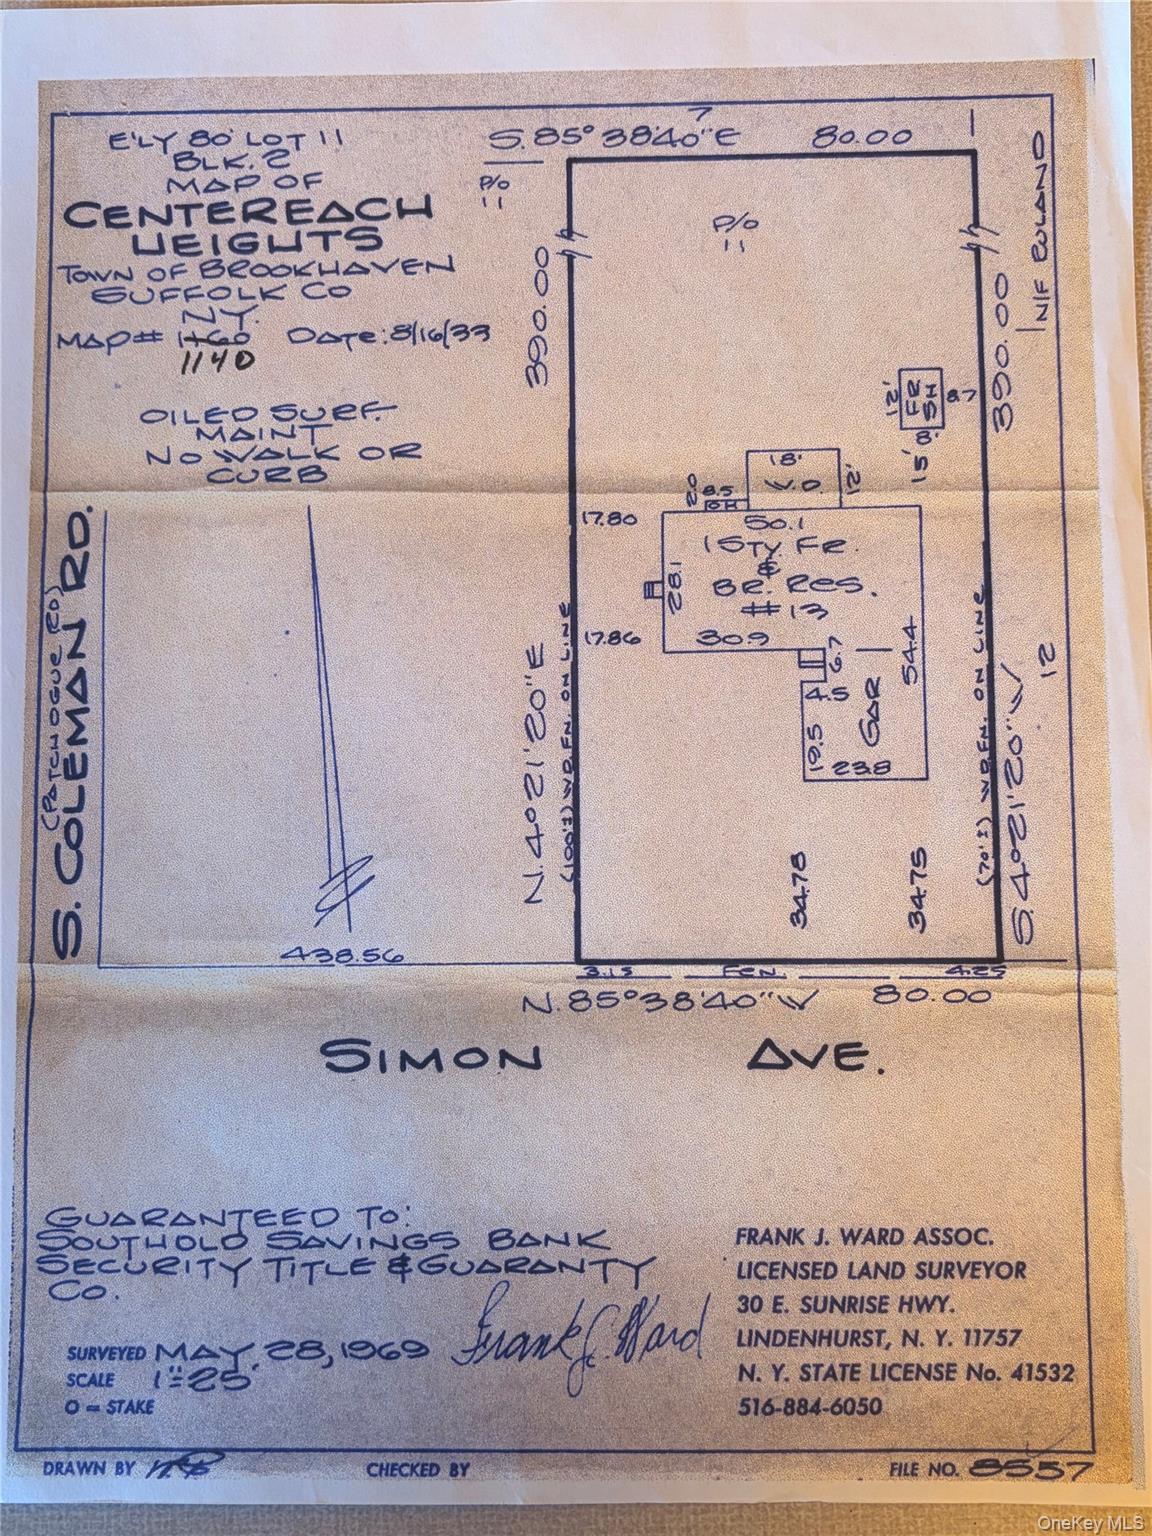 E'LY 80' LOT 11
BLK. 2
MAP OF
CENTEREACH
HEIGHTS
TOWN OF BROOKHAVEN
SUFFOLK CO
NY.
MAP# 1160 DATE: 8/16/33
1140
OILED SURF.
MAINT
NO WALK OR
CURB
7
S. 85° 38'40" E 80.00
P/O
11
P/O
11
390.00
390.00
N/F RULAND
12'
FR
SH
8.7
15'
8'
18'
W.D.
12'
2.0
8.5
OH
17.80
50.1
1 STY. FR.
&
BR. RES.
#13
28.1
17.86
30.9
6.7
54.4
4.5
GAR
19.5
23.8
12
(PATCHOGUE RD)
S. COLEMAN RD.
N. 4° 21' 20" E
(100'±) WD. FN. ON LINE
(70'±) WD. FN. ON LINE
S. 4° 21' 20" W
34.78
34.75
438.56
3.15 FCN. 4.25
N. 85° 38' 40" W 80.00
SIMON AVE.
GUARANTEED TO:
SOUTHOLD SAVINGS BANK
SECURITY TITLE & GUARANTY
CO.
Frank J. Ward
SURVEYED MAY. 28, 1969
SCALE 1"=25'
O = STAKE
FRANK J. WARD ASSOC.
LICENSED LAND SURVEYOR
30 E. SUNRISE HWY.
LINDENHURST, N. Y. 11757
N. Y. STATE LICENSE No. 41532
516-884-6050
DRAWN BY CHECKED BY FILE NO. 8557
OneKey MLS